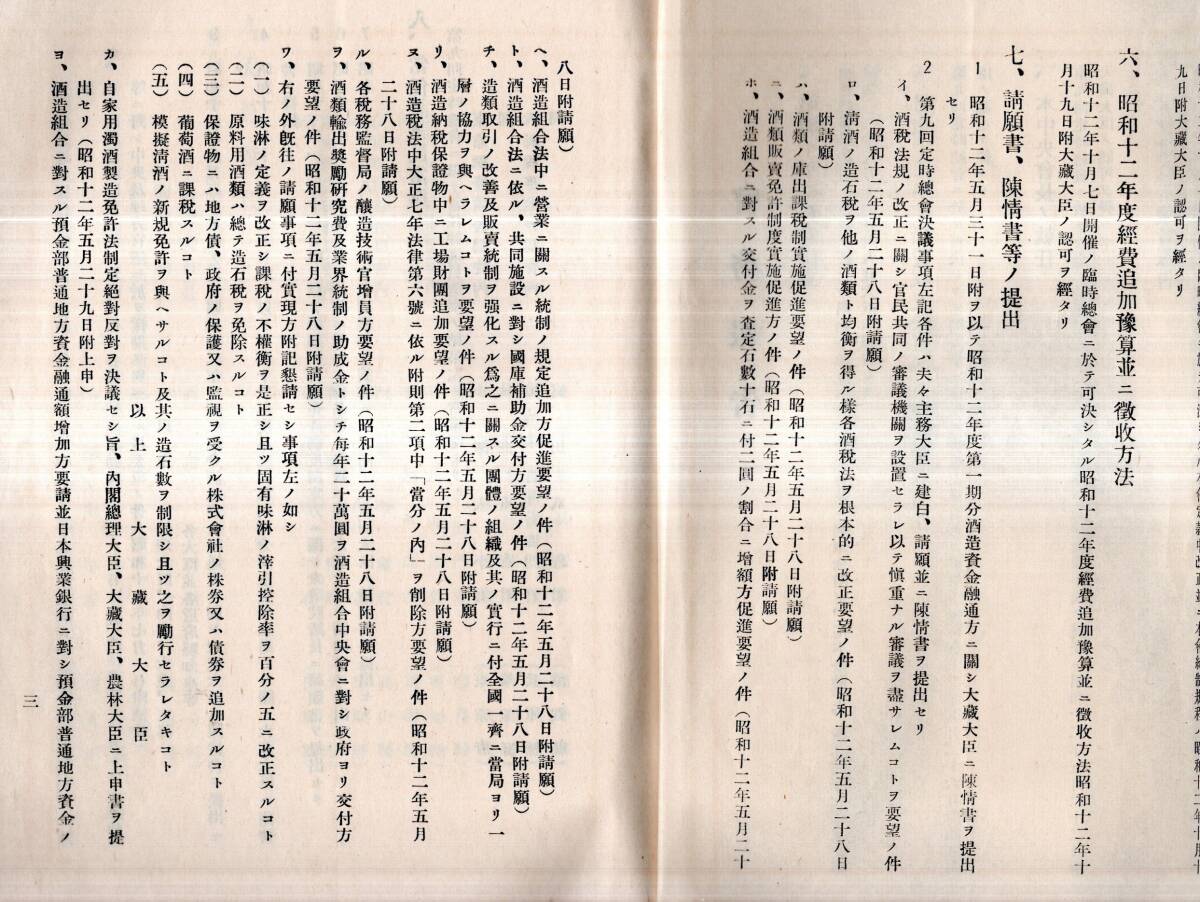 九日附大藏大臣ノ認可ヲ經タリ
六、昭和十二年度經費追加豫算並ニ徵收方法
昭和十二年十月七日開催ノ臨時總會ニ於テ可決シタル昭和十二年度經費追加豫算並ニ徵收方法昭和十二年十
月十九日附大藏大臣ノ認可ヲ經タリ
七、請願書、陳情書等ノ提出
1 昭和十二年五月三十一日附ヲ以テ昭和十二年度第一期分酒造資金融通方ニ關シ大藏大臣ニ陳情書ヲ提出
セリ
2 第九回定時總會決議事項左記各件ハ夫々主務大臣ニ建白、請願並ニ陳情書ヲ提出セリ
イ、酒稅法規ノ改正ニ關シ官民共同ノ審議機關ヲ設置セラレ以テ愼重ナル審議ヲ盡サレムコトヲ要望ノ件
(昭和十二年五月二十八日附請願)
ロ、淸酒ノ造石稅ヲ他ノ酒類ト均衡ヲ得ル樣各酒稅法ヲ根本的ニ改正要望ノ件(昭和十二年五月二十八日
附請願)
ハ、酒類ノ庫出課稅制實施促進要望ノ件(昭和十二年五月二十八日附請願)
ニ、酒類販賣免許制度實施促進方ノ件(昭和十二年五月二十八日附請願)
ホ、酒造組合ニ對スル交付金ヲ査定石數十石ニ付二圓ノ割合ニ增額方促進要望ノ件(昭和十二年五月二十
八日附請願)
ヘ、酒造組合法中ニ營業ニ關スル統制ノ規定追加方促進要望ノ件(昭和十二年五月二十八日附請願)
ト、酒造組合法ニ依ル、共同施設ニ對シ國庫補助金交付方要望ノ件(昭和十二年五月二十八日附請願)
チ、造類取引ノ改善及販賣統制ヲ强化スル爲之ニ關スル團體ノ組織及其ノ實行ニ付全國一齊ニ當局ヨリ一
層ノ協力ヲ與ヘラレムコトヲ要望ノ件(昭和十二年五月二十八日附請願)
リ、酒造納稅保證物中ニ工場財團追加要望ノ件(昭和十二年五月二十八日附請願)
ヌ、酒造稅法中大正七年法律第六號ニ依ル附則第二項中「當分ノ內」ヲ削除方要望ノ件(昭和十二年五月
二十八日附請願)
ル、各稅務監督局ノ釀造技術官增員方要望ノ件(昭和十二年五月二十八日附請願)
ヲ、酒類輸出奬勵硏究費及業界統制ノ助成金トシテ每年二十萬圓ヲ酒造組合中央會ニ對シ政府ヨリ交付方
要望ノ件(昭和十二年五月二十八日附請願)
ワ、右ノ外旣往ノ請願事項ニ付實現方附記懇請セシ事項左ノ如シ
(一) 味淋ノ定義ヲ改正シ課稅ノ不權衡ヲ是正シ且ツ固有味淋ノ滓引控除率ヲ百分ノ五ニ改正スルコト
(二) 原料用酒類ハ總テ造石稅ヲ免除スルコト
(三) 保證物ニハ地方債、政府ノ保護又ハ監視ヲ受クル株式會社ノ株券又ハ債券ヲ追加スルコト
(四) 葡萄酒ニ課稅スルコト
(五) 模擬淸酒ノ新規免許ヲ與ヘサルコト及其ノ造石數ヲ制限シ且ツ之ヲ勵行セラレタキコト
以上 大藏大臣
カ、自家用濁酒製造免許法制定絕對反對ヲ決議セシ旨、內閣總理大臣、大藏大臣、農林大臣ニ上申書ヲ提
出セリ(昭和十二年五月二十九日附上申)
ヨ、酒造組合ニ對スル預金部普通地方資金融通額增加方要請並日本興業銀行ニ對シ預金部普通地方資金ノ
三